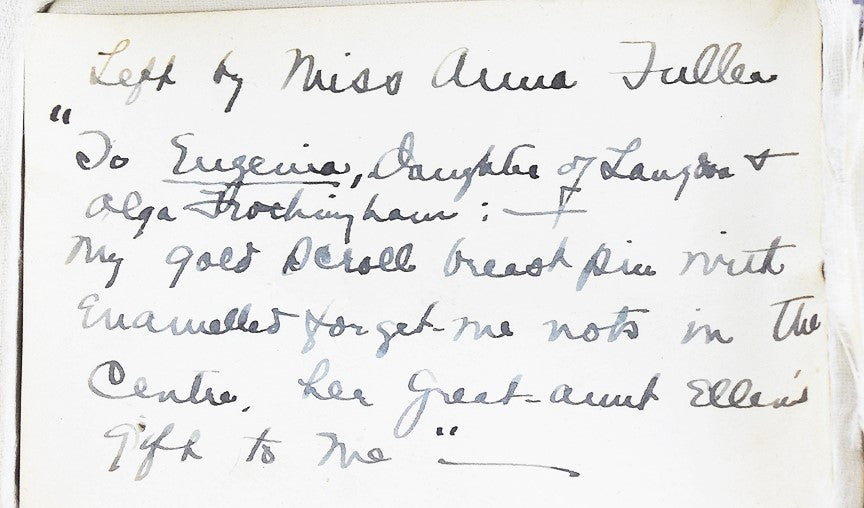 Left by Miss Anna Fuller
"To Eugenia, Daughter of Langdon &
Olga Frothingham : —
My gold scroll breast pin with
Enamelled forget-me nots in the
Centre, her great-aunt Ellen's
gift to me" —